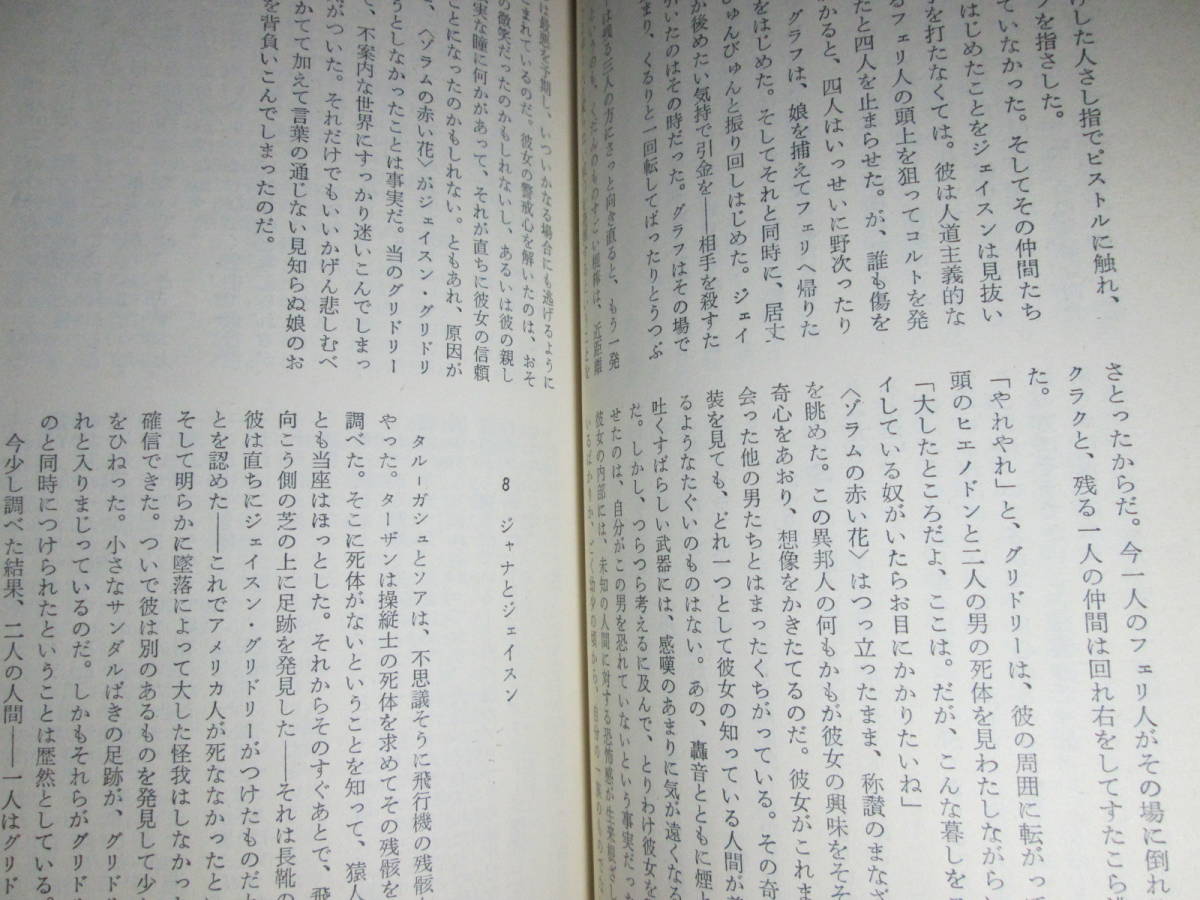 した人さし指でピストルに触れ、
を指さした。
ていなかった。そしてその仲間たち
はじめたことをジェイスンは見抜い
を打たなくては。彼は人道主義的な
るフェリ人の頭上を狙ってコルトを発
たと四人を止まらせた。が、誰も傷を
かると、四人はいっせいに野次ったり
グラフは、娘を捕えてフェリへ帰りた
をはじめた。そしてそれと同時に、居丈
びゅんびゅんと振り回しはじめた。ジェイ
か後めたい気持で引金を――相手を殺すた
いたのはその時だった。グラフはその場で
まり、くるりと一回転してばったりとうつぶ
は残る三人の方にさっと向き直ると、もう一発
さとったからだ。今一人のフェリ人がその場に倒れ
クラクと、残る一人の仲間は回れ右をしてすたこら
た。
「やれやれ」と、グリドリーは、彼の周囲に転がっ
頭のヒエノドンと二人の男の死体を見わたしながら
「大したところだよ、ここは。だが、こんな暮しを
イしている奴がいたらお目にかかりたいね」
〈ゾラムの赤い花〉はつっ立ったまま、称讃のまなざ
を眺めた。この異邦人の何もかもが彼女の興味をそそ
奇心をあおり、想像をかきたてるのだ。彼女がこれま
会った他の男たちとはまったくちがっている。その奇
装を見ても、どれ一つとして彼女の知っている人間が
るようなたぐいのものはない。あの、轟音とともに煙
吐くすばらしい武器には、感嘆のあまりに気が遠くなる
だ。しかし、つらつら考えるに及んで、とりわけ彼女を
せたのは、自分がこの男を恐れていないという事実だった
彼女の内部には、未知の人間に対する恐怖感が生来根ざし
は最悪を予期し、いついかなる場合にも逃げるように
こまれているのだ。彼女の警戒心を解いたのは、おそ
の微笑だったのかもしれないし、あるいは彼の親し
実な瞳に何かがあって、それが直ちに彼女の信頼
ことになったのかもしれない。ともあれ、原因が
〈ゾラムの赤い花〉がジェイスン・グリドリ
うとしなかったことは事実だ。当のグリドリー
、不案内な世界にすっかり迷いこんでしまっ
がついた。それだけでもいいかげん悲しむべ
かてて加えて言葉の通じない見知らぬ娘のお
を背負いこんでしまったのだ。
8 ジャナとジェイスン
タル-ガシュとソアは、不思議そうに飛行機の残骸
やった。ターザンは操縦士の死体を求めてその残骸を
調べた。そこに死体がないということを知って、猿人
とも当座はほっとした。それからそのすぐあとで、飛
向こう側の芝の上に足跡を発見した――それは長靴の
彼は直ちにジェイスン・グリドリーがつけたものだ
とを認めた――これでアメリカ人が死ななかったとい
そして明らかに墜落によって大した怪我はしなかった
確信できた。ついで彼は別のあるものを発見して少し
をひねった。小さなサンダルばきの足跡が、グリド
れと入りまじっているのだ。しかもそれらがグリド
のと同時につけられたということは歴然としている。
今少し調べた結果、二人の人間――一人はグリド